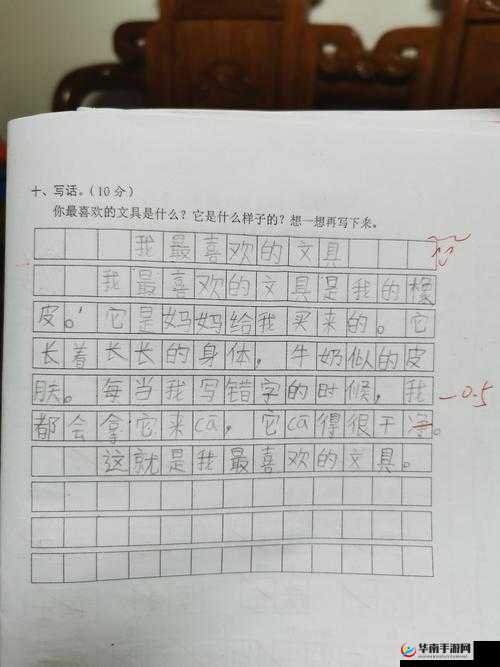 十、写话。(10分)
你最喜欢的文具是什么?它是什么样子的?想一想再写下来。
我最喜欢的文具
我最喜欢的文具是我的橡
皮。它是妈妈给我买来的。它
长着长长的身体,牛奶似的皮
肤。每当我写错字的时候,我
-0.5
都会拿它来cā,它cā得很干净。
这就是我最喜欢的文具。
华南手游网